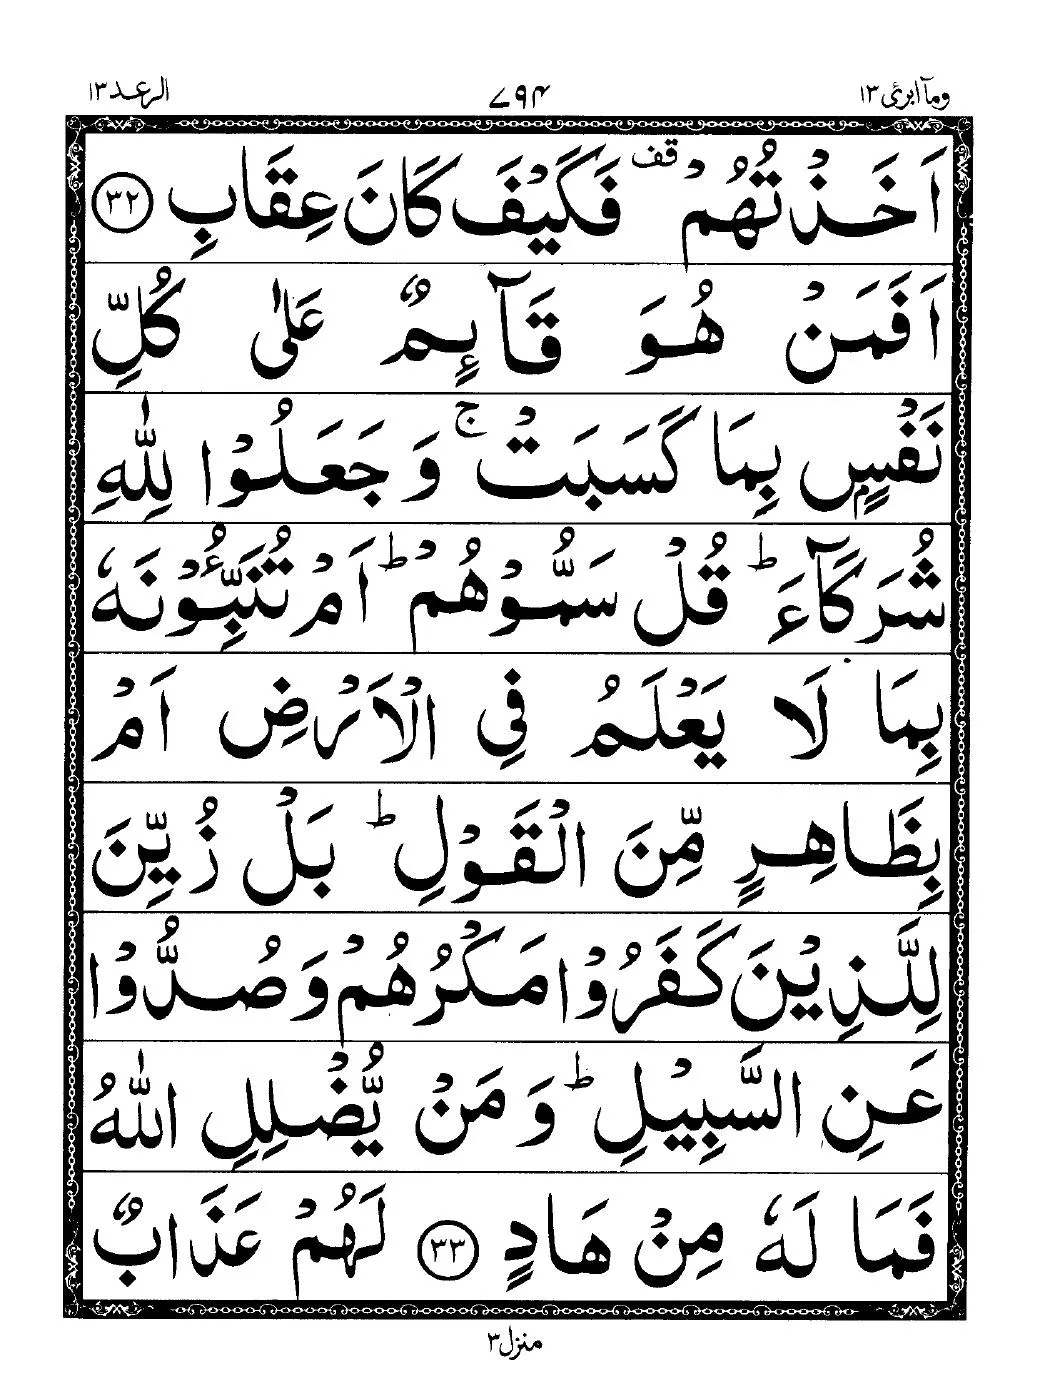 وما ابرئ ١٣ ٧٩٤ الرعد ١٣
اَخَذْتُهُمْ ۫ فَكَيْفَ كَانَ عِقَابِ ٣٢
اَفَمَنْ هُوَ قَآىِٕمٌ عَلٰى كُلِّ
نَفْسٍۭ بِمَا كَسَبَتْ ۚ وَ جَعَلُوْا لِلّٰهِ
شُرَكَآءَ ؕ قُلْ سَمُّوْهُمْ ؕ اَمْ تُنَبِّـُٔوْنَهٗ
بِمَا لَا يَعْلَمُ فِي الْاَرْضِ اَمْ
بِظَاهِرٍ مِّنَ الْقَوْلِ ؕ بَلْ زُيِّنَ
لِلَّذِيْنَ كَفَرُوْا مَكْرُهُمْ وَ صُدُّوْا
عَنِ السَّبِيْلِ ؕ وَ مَنْ يُّضْلِلِ اللّٰهُ
فَمَا لَهٗ مِنْ هَادٍ ٣٣ لَهُمْ عَذَابٌ
منزل ٣